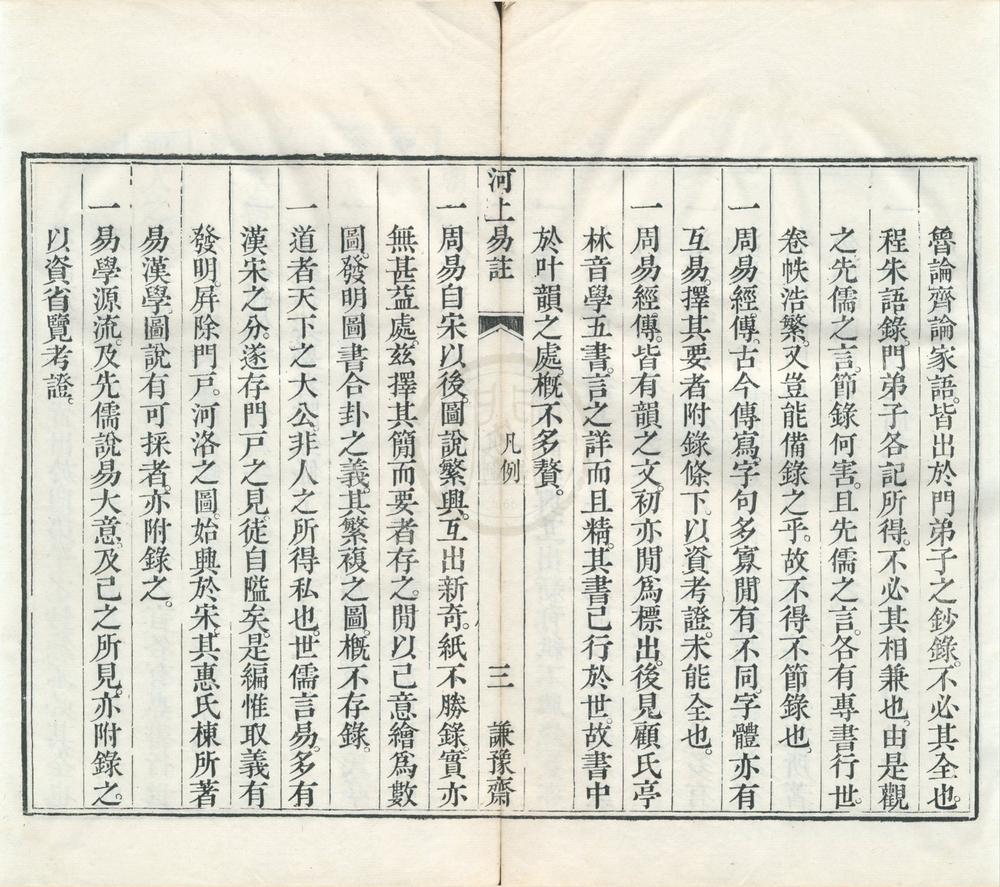 魯論齊論家語。皆出於門弟子之鈔錄。不必其全也。
程朱語錄。門弟子各記所得。不必其相兼也。由是觀
之先儒之言。節錄何害。且先儒之言。各有專書行世。
卷帙浩繁。又豈能備錄之乎。故不得不節錄也。
一周易經傳。古今傳寫。字句多寡。閒有不同。字體亦有
互易。擇其要者附錄條下。以資考證。未能全也。
一周易經傳。皆有韻之文。初亦閒爲標出。後見顧氏亭
林音學五書。言之詳而且精。其書已行於世。故書中
於叶韻之處。槪不多贅。
河上易註
凡例
三
謙豫齋
一周易自宋以後。圖說繁興。互出新奇。紙不勝錄。實亦
無甚益處。兹擇其簡而要者存之。閒以己意繪爲數
圖。發明圖書合卦之義。其繁複之圖。槪不存錄。
一道者天下之大公。非人之所得私也。世儒言易。多有
漢宋之分。遂存門戸之見。徒自隘矣。是編惟取義有
發明。屛除門戸。河洛之圖。始興於宋。其惠氏棟所著
易漢學。圖說有可採者。亦附錄之。
一易學源流。及先儒說易大意。及己之所見。亦附錄之。
以資省覽考證。